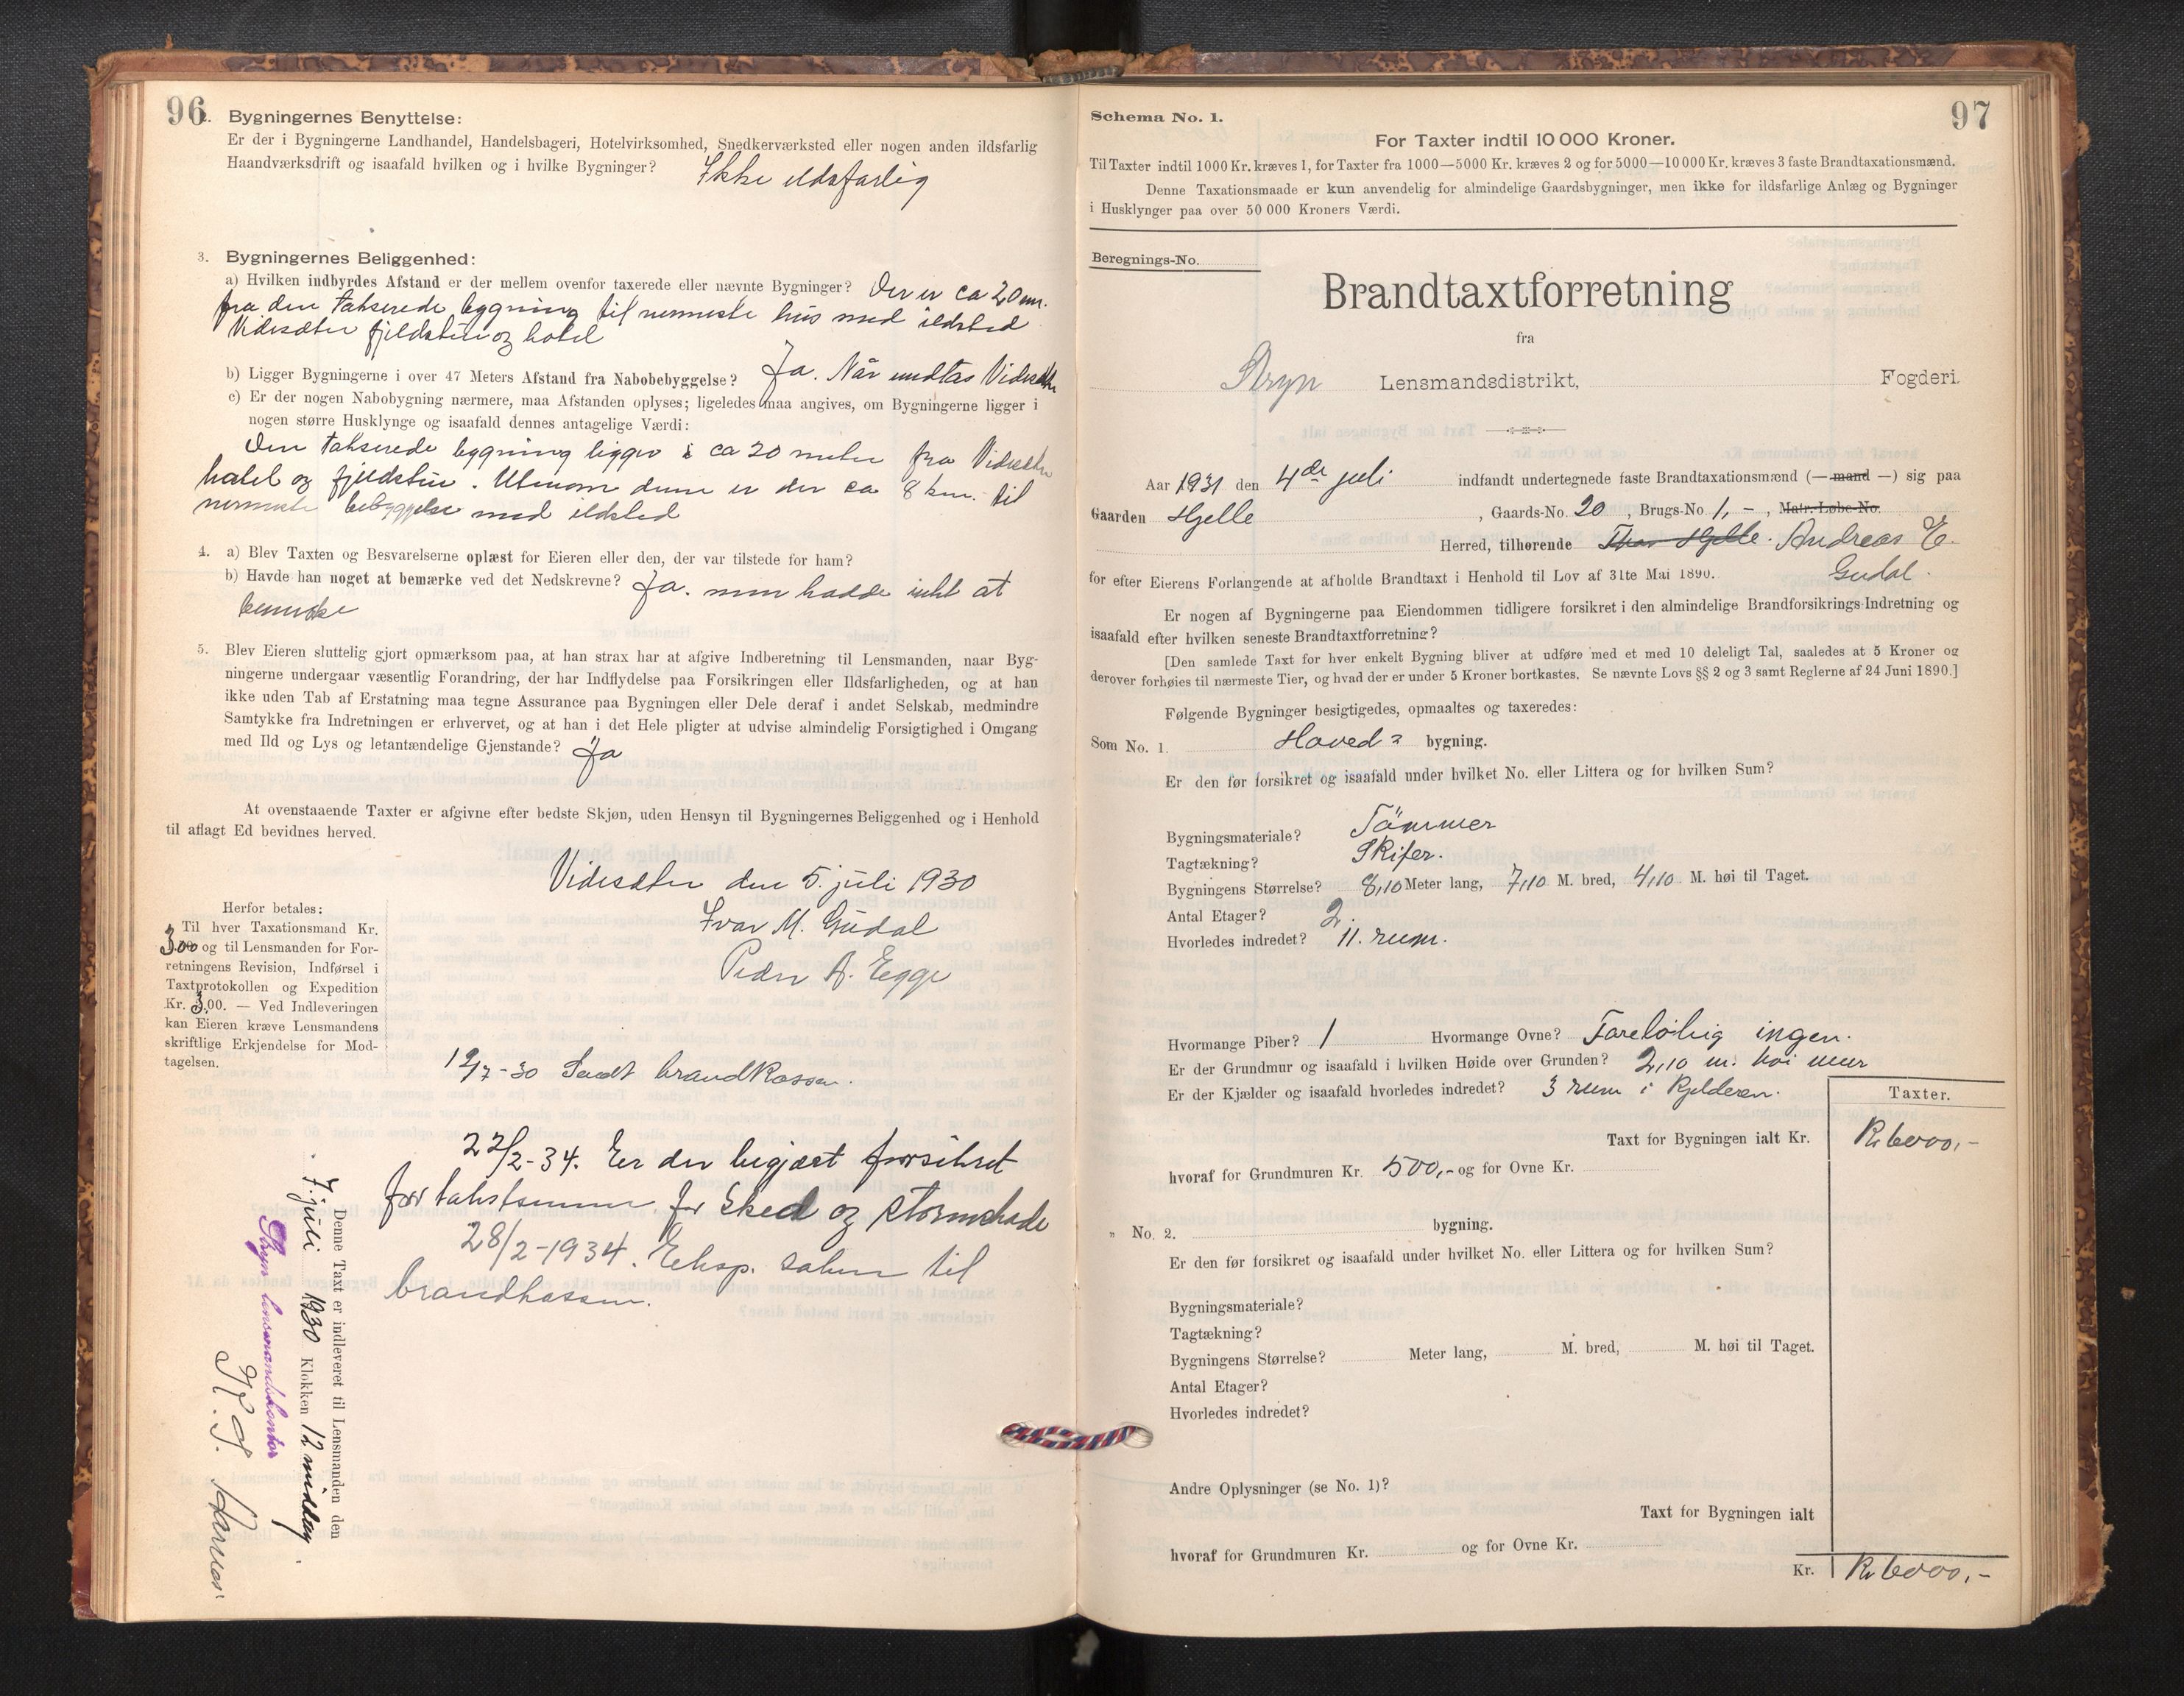 96
2. Bygningernes Benyttelse:
Er der i Bygningerne Landhandel, Handelsbageri, Hotelvirksomhed, Snedkerværksted eller nogen anden ildsfarlig
Haandværksdrift og isaafald hvilken og i hvilke Bygninger? Ikke ildsfarlig
3. Bygningernes Beliggenhed:
a) Hvilken indbyrdes Afstand er der mellem ovenfor taxerede eller nævnte Bygninger? Der er ca 20 m.
fra den takserede bygning til nermeste hus med ildsted
Videsæter fjeldstue og hotel
b) Ligger Bygningerne i over 47 Meters Afstand fra Nabobebyggelse? Ja. Når undtas Videsæter
c) Er der nogen Nabobygning nærmere, maa Afstanden oplyses; ligeledes maa angives, om Bygningerne ligger i
nogen større Husklynge og isaafald dennes antagelige Værdi:
Den takserede bygning ligger i ca 20 meter fra Videsæter
hotel og fjeldstue. Utenom denne er der ca 8 km. til
nermeste bebyggelse med ildsted
4. a) Blev Taxten og Besvarelserne oplæst for Eieren eller den, der var tilstede for ham?
b) Havde han noget at bemærke ved det Nedskrevne? Ja. men hadde intet at
bemerke
5. Blev Eieren sluttelig gjort opmærksom paa, at han strax har at afgive Indberetning til Lensmanden, naar Byg-
ningerne undergaar væsentlig Forandring, der har Indflydelse paa Forsikringen eller Ildsfarligheden, og at han
ikke uden Tab af Erstatning maa tegne Assurance paa Bygningen eller Dele deraf i andet Selskab, medmindre
Samtykke fra Indretningen er erhvervet, og at han i det Hele pligter at udvise almindelig Forsigtighed i Omgang
med Ild og Lys og letantændelige Gjenstande? Ja
At ovenstaaende Taxter er afgivne efter bedste Skjøn, uden Hensyn til Bygningernes Beliggenhed og i Henhold
til aflagt Ed bevidnes herved.
Videsæter den 5. juli 1930
Ivar M. Gudal
Peder A. Egge
Herfor betales:
Til hver Taxationsmand Kr.
3,00 og til Lensmanden for For-
retningens Revision, Indførsel i
Taxtprotokollen og Expedition
Kr. 3,00. — Ved Indleveringen
kan Eieren kræve Lensmandens
skriftlige Erkjendelse for Mod-
tagelsen.
12/7-30 Sendt brandkassen.
22/2-34. Er der begjært forsikret
for takstsummen for Sked og stormskade
28/2-1934. Eksp. saken til
brandkassen.
Denne Taxt er indleveret til Lensmanden den
7. juli 1930 Klokken 12 middag.
Stryn lensmandskontor
97
Schema No. 1.
For Taxter indtil 10 000 Kroner.
Til Taxter indtil 1000 Kr. kræves 1, for Taxter fra 1000—5000 Kr. kræves 2 og for 5000—10 000 Kr. kræves 3 faste Brandtaxationsmænd.
Denne Taxationsmaade er kun anvendelig for almindelige Gaardsbygninger, men ikke for ildsfarlige Anlæg og Bygninger
i Husklynger paa over 50 000 Kroners Værdi.
Beregnings-No.
Brandtaxtforretning
fra
Stryn Lensmandsdistrikt, Fogderi.
Aar 1931 den 4de juli indfandt undertegnede faste Brandtaxationsmænd (— mand —) sig paa
Gaarden Hjelle, Gaards-No. 20, Brugs-No. 1, -, Matr.-Løbe-No.
Herred, tilhørende Thor Hjelle. Andreas E.
Gudal.
for efter Eierens Forlangende at afholde Brandtaxt i Henhold til Lov af 31te Mai 1890.
Er nogen af Bygningerne paa Eiendommen tidligere forsikret i den almindelige Brandforsikrings-Indretning og
isaafald efter hvilken seneste Brandtaxtforretning?
[Den samlede Taxt for hver enkelt Bygning bliver at udføre med et med 10 deleligt Tal, saaledes at 5 Kroner og
derover forhøies til nærmeste Tier, og hvad der er under 5 Kroner bortkastes. Se nævnte Lovs §§ 2 og 3 samt Reglerne af 24 Juni 1890.]
Følgende Bygninger besigtigedes, opmaaltes og taxeredes:
Som No. 1. Hoved bygning.
Er den før forsikret og isaafald under hvilket No. eller Littera og for hvilken Sum?
Bygningsmateriale? Tömmer
Tagtækning? Skifer.
Bygningens Størrelse? 8,10 Meter lang, 7,10 M. bred, 4,10 M. høi til Taget.
Antal Etager? 2.
Hvorledes indredet? 11. rum.
Hvormange Piber? 1 Hvormange Ovne? Foreløbig ingen.
Er der Grundmur og isaafald i hvilken Høide over Grunden? 2,10 m. høi mur
Er der Kjælder og isaafald hvorledes indredet? 3 rum i Kjelderen.
Taxter.
Taxt for Bygningen ialt Kr. Kr 6000,-
hvoraf for Grundmuren Kr. 500,- og for Ovne Kr.
" No. 2. bygning.
Er den før forsikret og isaafald under hvilket No. eller Littera og for hvilken Sum?
Bygningsmateriale?
Tagtækning?
Bygningens Størrelse? Meter lang, M. bred, M. høi til Taget.
Antal Etager?
Hvorledes indredet?
Andre Oplysninger (se No. 1)?
Taxt for Bygningen ialt
hvoraf for Grundmuren Kr. og for Ovne Kr.
Kr. Kr 6000,-